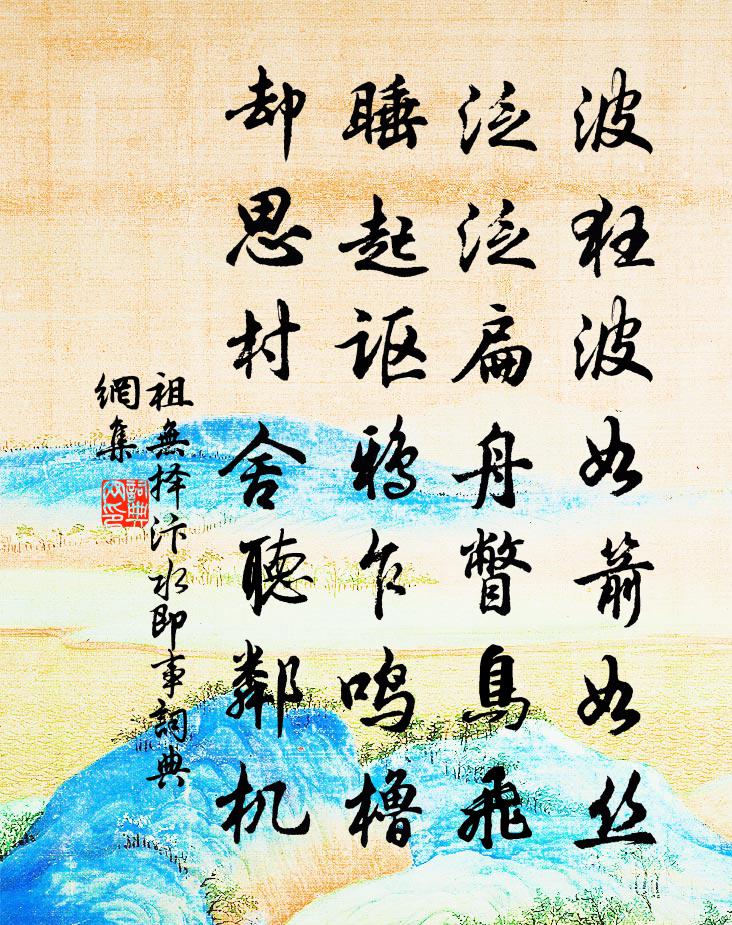 波狂波如箭如丝
泛泛扁舟瞥鳥飛
睡起讴鴉乍鸣橹
却思村舍聽鄰机
祖無择汴水即事詞典
網集
詞典